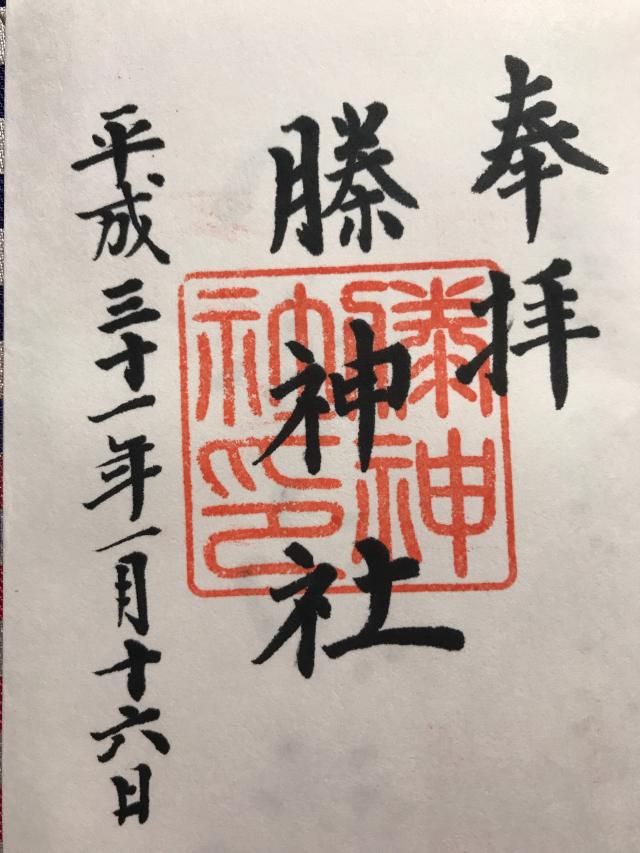 奉拝
榺神社
榺神
社印
平成三十一年一月十六日